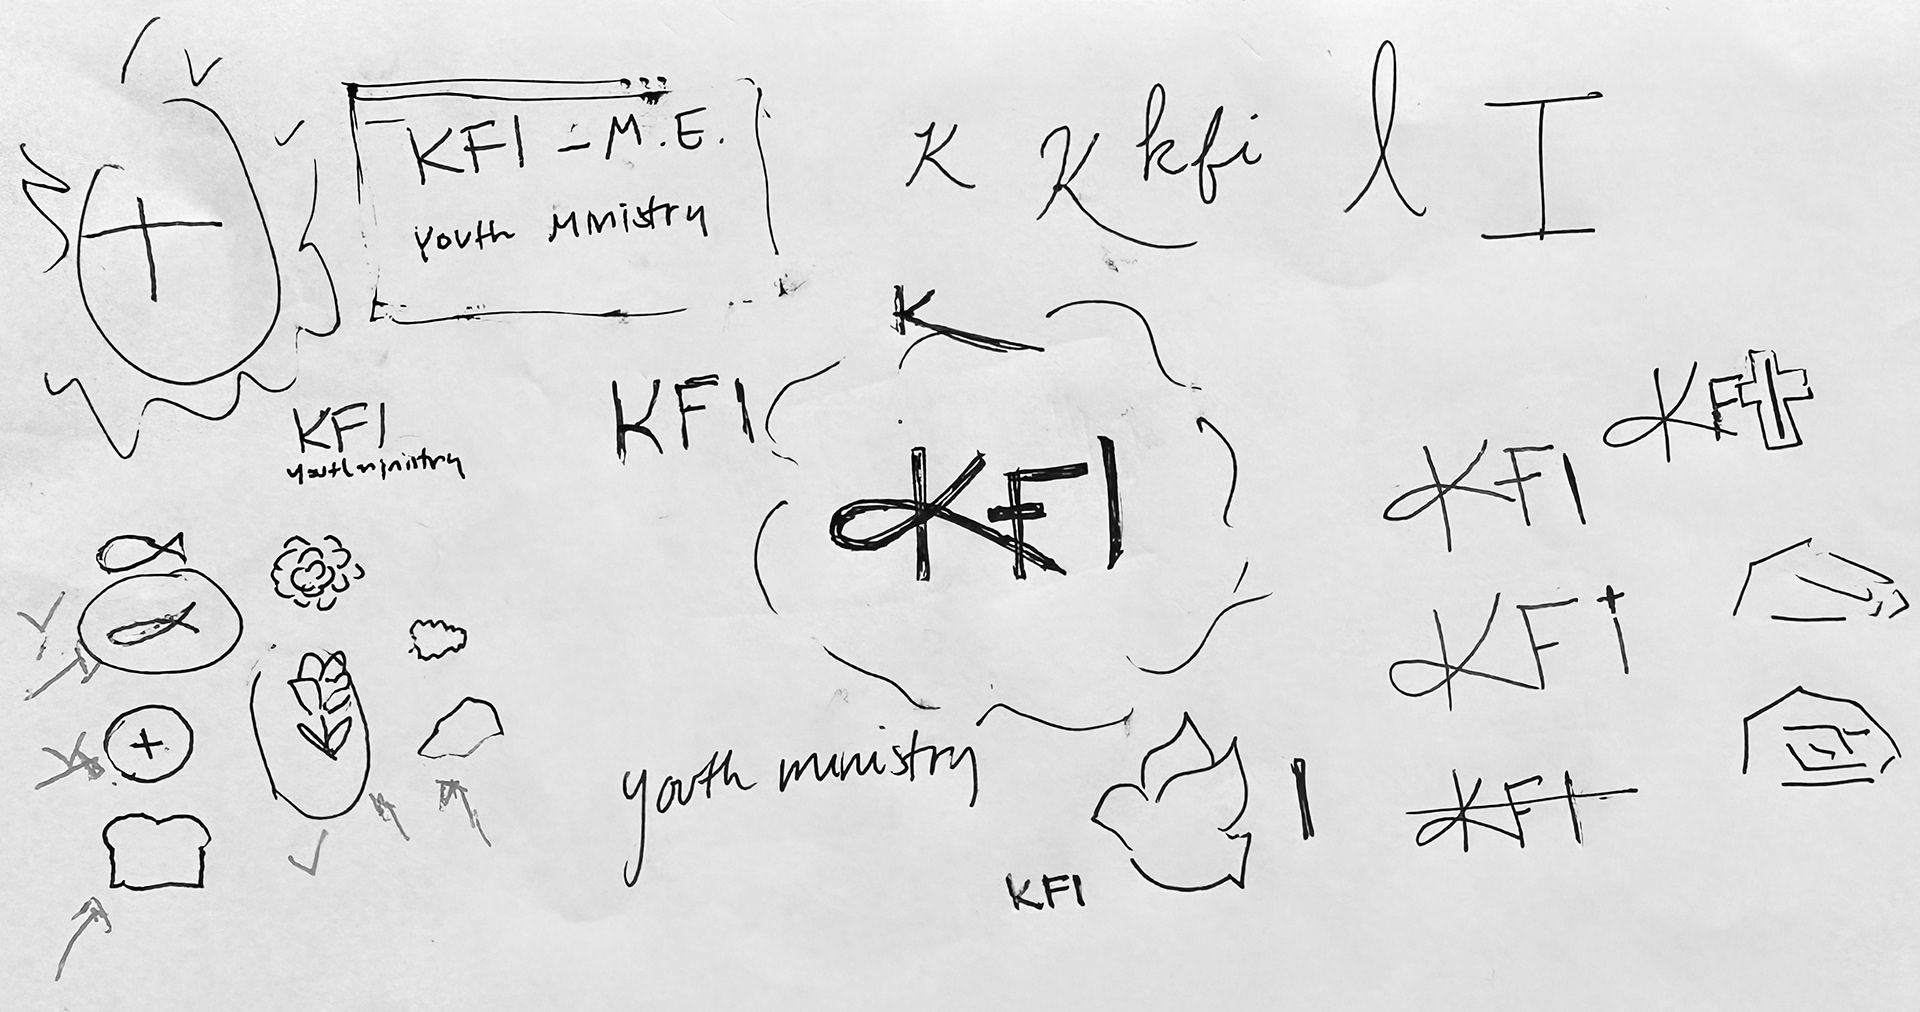 KFI - M.E.
youth ministry
K K kfi l I
K
KFI
youth ministry
KFI
KFI
KF
KFI
KFI
youth ministry
I
KFI
KFI